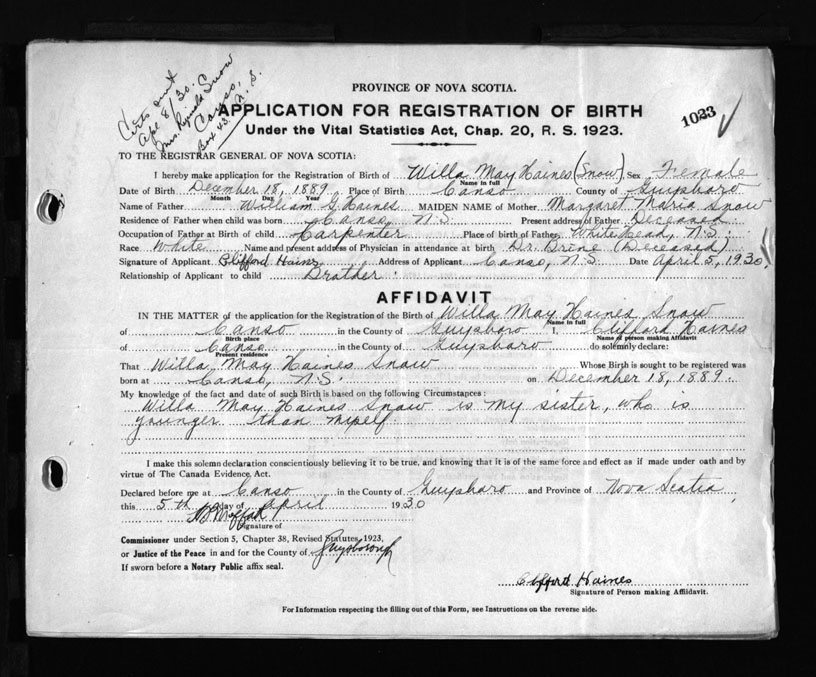 Certs sent
Apl 8/30.
Mrs. Reginald Snow
Canso,
Box 43. N. S.
PROVINCE OF NOVA SCOTIA.
APPLICATION FOR REGISTRATION OF BIRTH
1023
Under the Vital Statistics Act, Chap. 20, R. S. 1923.
TO THE REGISTRAR GENERAL OF NOVA SCOTIA:
I hereby make application for the Registration of Birth of Willa May Haines (Snow) Sex Female
Name in full
Date of Birth December 18, 1889 Place of Birth Canso County of Guysboro
Month Day Year
Name of Father William G. Haines MAIDEN NAME of Mother Margaret Maria Snow
Residence of Father when child was born Canso, N.S. Present address of Father Deceased
Occupation of Father at Birth of child Carpenter Place of birth of Father White Head, N.S.
Race White Name and present address of Physician in attendance at birth Dr. Brine (Deceased)
Signature of Applicant Clifford Haines Address of Applicant Canso, N.S. Date April 5, 1930,
Relationship of Applicant to child Brother
AFFIDAVIT
IN THE MATTER of the application for the Registration of the Birth of Willa May Haines Snow
Name in full
of Canso in the County of Guysboro I, Clifford Haines
Birth place Name of person making Affidavit
of Canso in the County of Guysboro do solemnly declare:
Present residence
That Willa May Haines Snow Whose Birth is sought to be registered was
born at Canso, N.S. on December 18, 1889.
My knowledge of the fact and date of such Birth is based on the following Circumstances:
Willa May Haines Snow is my sister, who is
younger than myself.
I make this solemn declaration conscientiously believing it to be true, and knowing that it is of the same force and effect as if made under oath and by
virtue of The Canada Evidence Act.
Declared before me at Canso in the County of Guysboro and Province of Nova Scotia,
this 5th day of April 1930
Moffatt
Signature of
Commissioner under Section 5, Chapter 38, Revised Statutes, 1923,
or Justice of the Peace in and for the County of Guysborough
If sworn before a Notary Public affix seal.
Clifford Haines
Signature of Person making Affidavit.
For Information respecting the filling out of this Form, see Instructions on the reverse side.